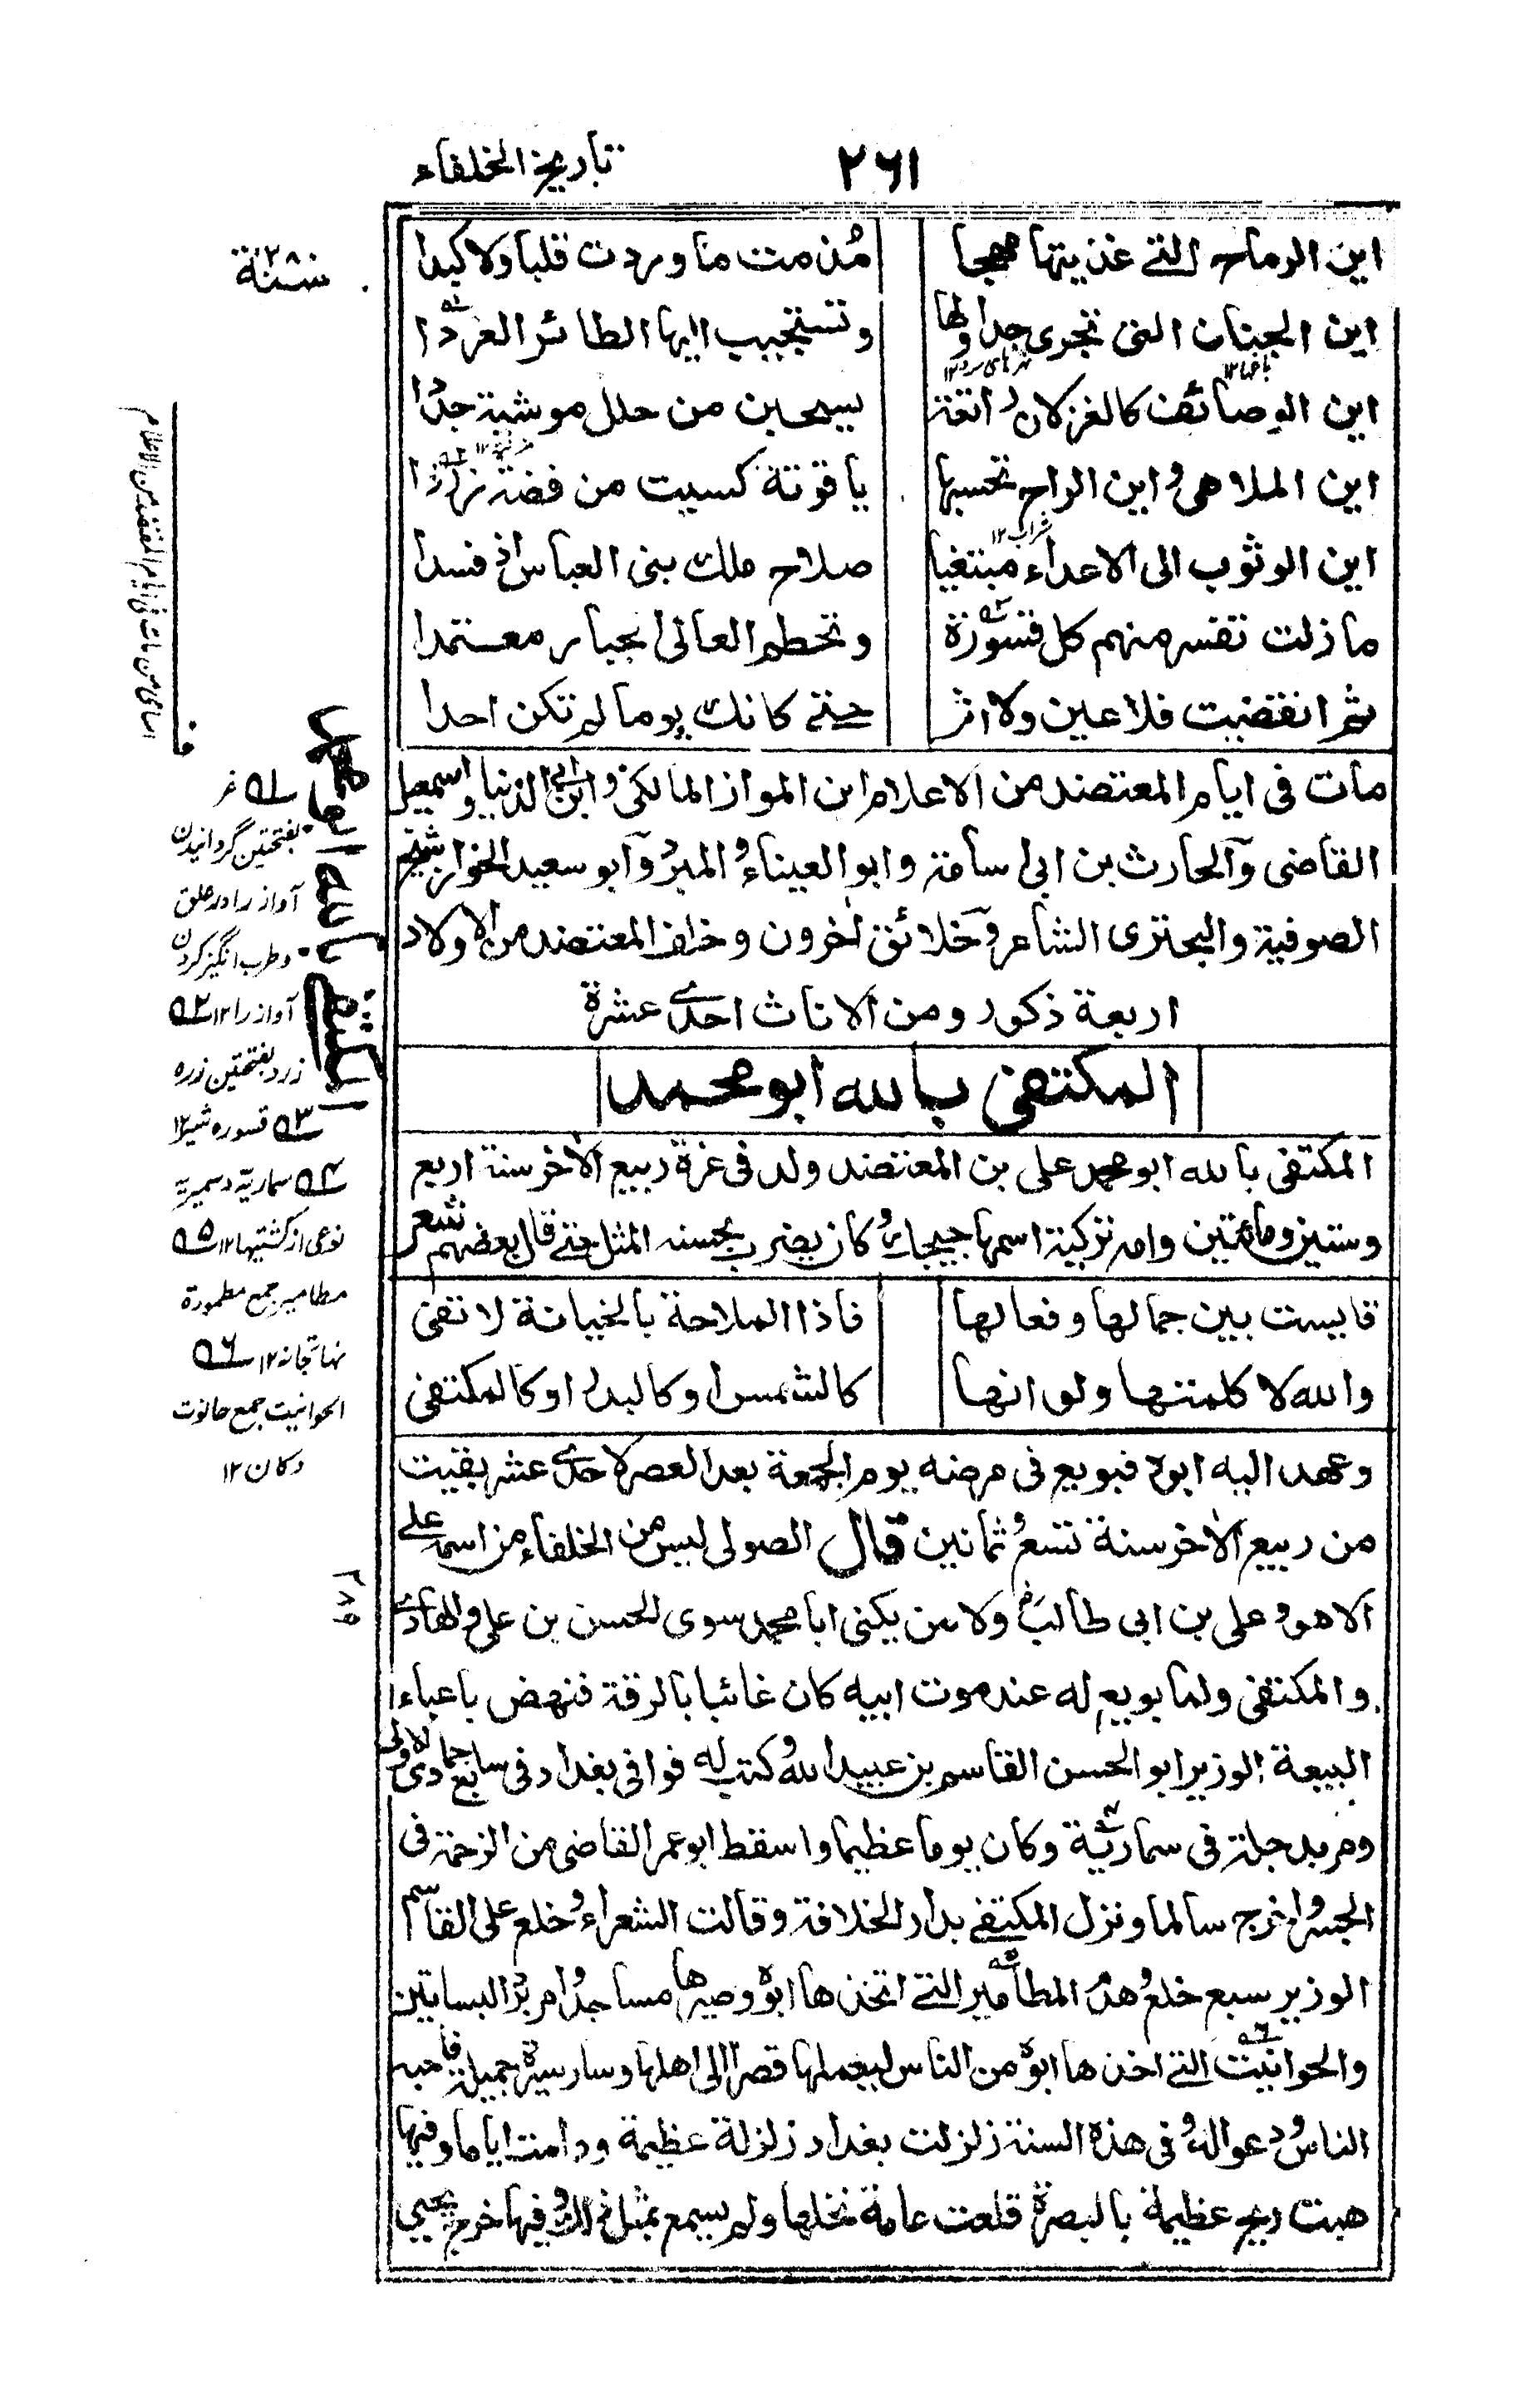 ٢٦١ تاريخ الخلفاء
اين الرماح التى غذيتها مهجا مذمت ما وردت قلبا ولا كبدا
اين الجنان التى تجرى جداولها وتستجيب اليها الطائر الغردا
اين الوصائف كالغزلان راتعة يسحبن من حلل موشية جددا
اين الملاهى واين الراح تحسبها ياقوتة كسيت من فضة زردا
اين الوثوب الى الاعداء مبتغيا صلاح ملك بنى العباس اذ فسدا
ما زلت تقسر منهم كل قسورة وتحطم العالى الجبار معتمدا
ثم انقضيت فلا عين ولا اثر حتى كانك يوما لم تكن احدا
مات فى ايام المعتضد من الاعلام ابن المواز المالكى وابن ابى الدنيا واسمعيل
القاضى والحارث بن ابى سامة وابو العيناء والمبرد وابو سعيد الخراز شيخ
الصوفية والبحترى الشاعر وخلائق اخرون وخلف المعتضد من الاولاد
اربعة ذكور ومن الاناث احدى عشرة
المكتفى بالله ابو محمد
المكتفى بالله ابو محمد على بن المعتضد ولد فى غرة ربيع الاخر سنة اربع
وستين ومائتين وامه تركية اسمها جيجك وكان يضرب بحسنه المثل حتى قال بعضهم شعر
قايست بين جمالها وفعالها فاذا الملاحة بالخيانة لا تفى
والله لا كلمتها ولو انها كالشمس او كالبدر او كالمكتفى
وعهد اليه ابوه فبويع فى مرضه يوم الجمعة بعد العصر لاحدى عشر بقيت
من ربيع الاخر سنة تسع وثمانين قال الصولى ليس من الخلفاء من اسمه على
الا هو وعلى بن ابى طالب ولا من يكنى ابا محمد سوى الحسن بن على والهادى
والمكتفى ولما بويع له عند موت ابيه كان غائبا بالرقة فنهض باعباء
البيعة الوزير ابو الحسن القاسم بن عبيد الله وكتب له فوافى بغداد فى سابع جمادى الاولى
ومر بدجلة فى سمارية وكان يوما عظيما واسقط ابو عمر القاضى من الزحمة فى
الجسر واخرج سالما ونزل المكتفى بدار الخلافة وقالت الشعراء وخلع على القاسم
الوزير سبع خلع وهدم المطامير التى اتخذها ابوه وصيرها مساجد وامر برد البساتين
والحوانيت التى اخذها ابوه من الناس ليعملها قصرا الى اهلها وسار سيرة جميلة فاحبه
الناس ودعوا له وفى هذه السنة زلزلت بغداد زلزلة عظيمة ودامت اياما وفيها
هبت ريح عظيمة بالبصرة قلعت عامة نخلها ولم يسمع بمثل ذلك وفيها خرج يحيى
سنة ٢٨٠
المكتفى بالله ابو محمد
بفتحتين گردانيدن
آواز را در حلق
وطرب انگيز كردن
آواز را ١٢
زرد بفتحتين زره
قسوره شير ١٢
سمارية وسميرية
نوعى از كشتيها ١٢
مطامير جمع مطمورة
نهانخانه ١٢
الحوانيت جمع حانوت
دكان ١٢
٢٨٩